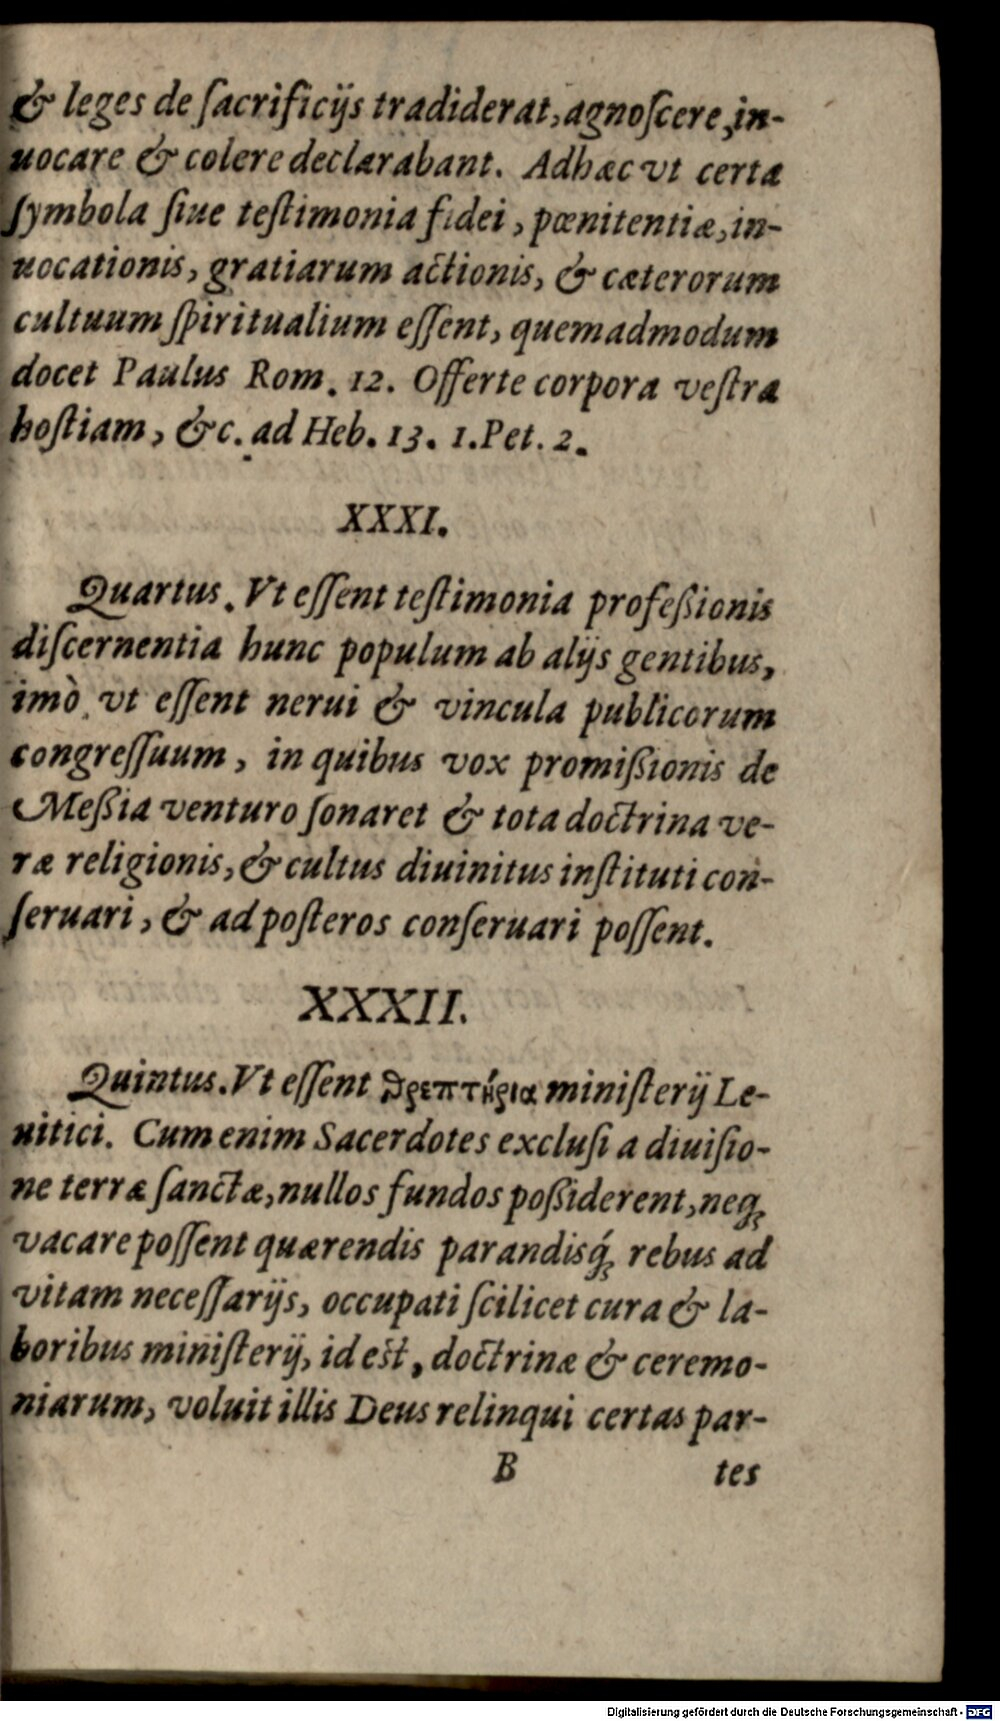 & leges de ſacrificijs tradiderat, agnoſcere, in-
uocare & colere declarabant. Adhæc vt certa
ſymbola ſiue teſtimonia fidei, pœnitentiæ, in-
uocationis, gratiarum actionis, & cæterorum
cultuum ſpiritualium eſſent, quemadmodum
docet Paulus Rom. 12. Offerte corpora veſtra
hoſtiam, &c. ad Heb. 13. 1. Pet. 2.
XXXI.
Quartus. Vt eſſent teſtimonia profeßionis
diſcernentia hunc populum ab alijs gentibus,
imò vt eſſent nerui & vincula publicorum
congreſſuum, in quibus vox promißionis de
Meßia venturo ſonaret & tota doctrina ve-
ræ religionis, & cultus diuinitus inſtituti con-
ſeruari, & ad poſteros conſeruari poſſent.
XXXII.
Quintus. Vt eſſent θρεπτήρια miniſterij Le-
uitici. Cum enim Sacerdotes excluſi a diuiſio-
ne terræ ſanctæ, nullos fundos poßiderent, neq;
vacare poſſent quærendis parandisq́; rebus ad
vitam neceſſarijs, occupati ſcilicet cura & la-
boribus miniſterij, id eſt, doctrinæ & ceremo-
niarum, voluit illis Deus relinqui certas par-
B tes
Digitalisierung gefördert durch die Deutsche Forschungsgemeinschaft - DFG